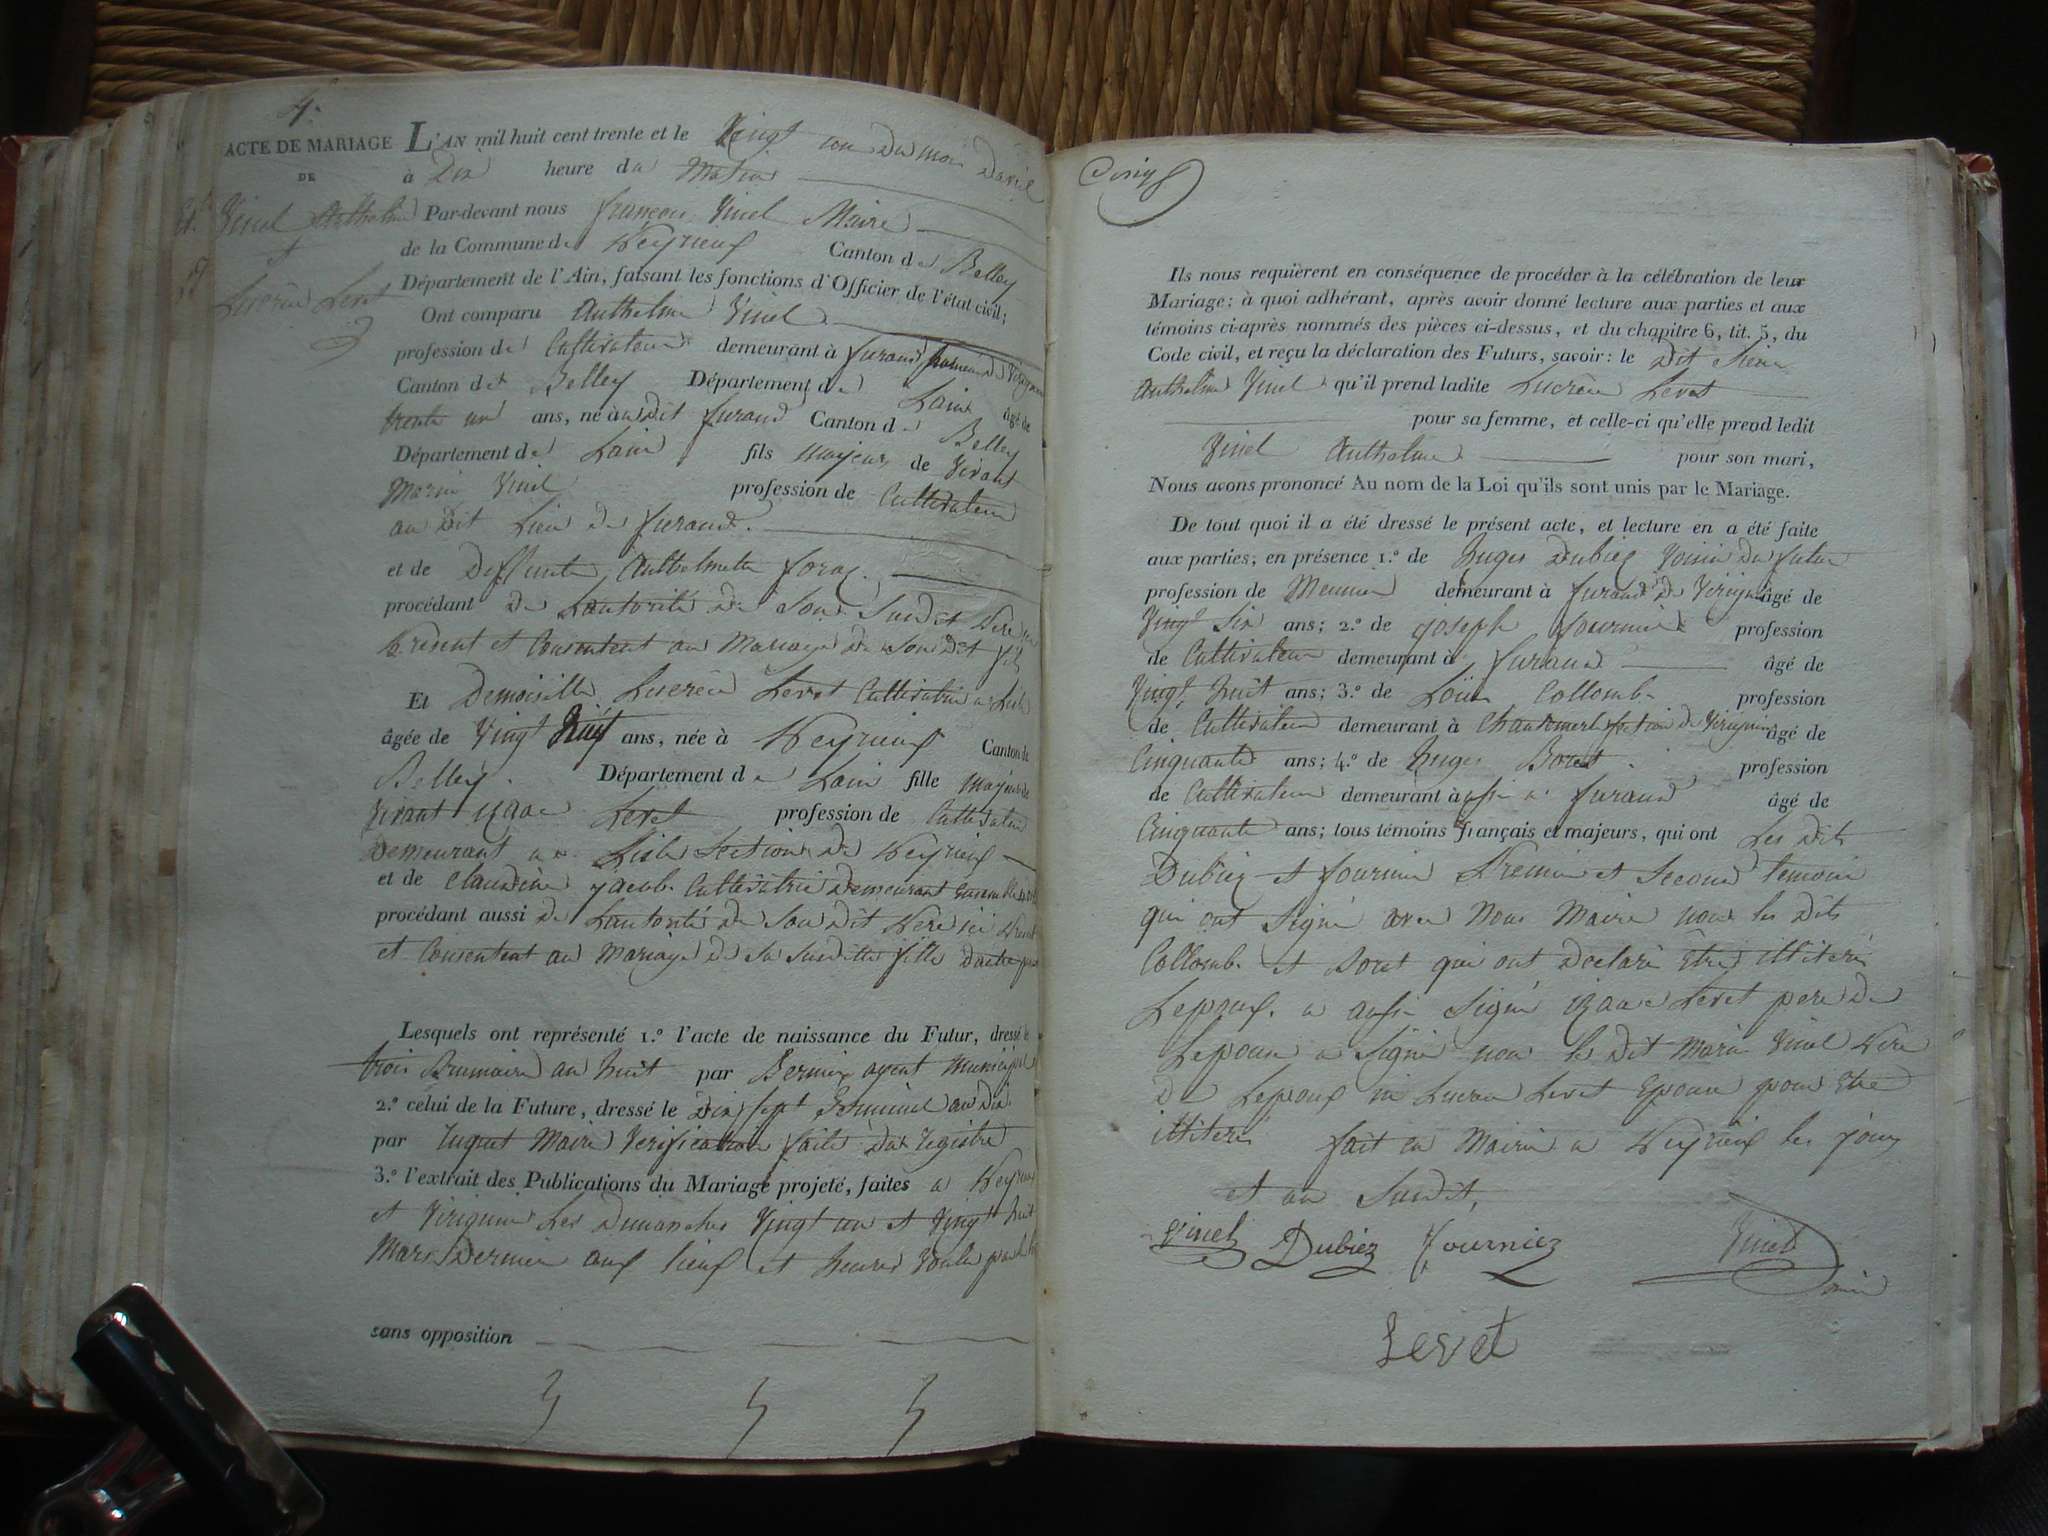 4.
ACTE DE MARIAGE
DE
Vinel Anthelme
et
Lucrèce Levet
L'AN mil huit cent trente et le Vingt un du mois Davril
à Dix heure du Matin
Par-devant nous françois Vinel Maire
de la Commune de Peyrieux Canton de Belley
Département de l'Ain, faisant les fonctions d'Officier de l'état civil;
Ont comparu Anthelme Vinel
profession de Cultivateur demeurant à furans de Virignin
Canton de Belley Département de Lain âgé de
trente un ans, né au dit furans Canton de Belley
Département de Lain fils majeur de Vivant
Marin Vinel profession de Cultivateur
au dit Lieu de furans.
et de Deffunte Anthelmette
procédant de Lautorité de Son Susdit Père
present et Consentent au Mariage de Son dit fils
Et Demoiselle Lucrèce Levet Cultivatrice a Lisle
âgée de Vingt huit ans, née à Peyrieux Canton de
Belley. Département de Lain fille majeure de
Vivant izaac Levet profession de Cultivateur
Demeurant a Lisle Section de Peyrieux
et de Claudine jacob Cultivatrice Demeurant
procédant aussi de Lautorité de Son dit Père ici Present
et Consentent au Mariage de Sa Susditte fille Dautre part
Lesquels ont représenté 1.º l'acte de naissance du Futur, dressé le
trois Brumaire an huit par agent municipal
2.º celui de la Future, dressé le Dix sept Germinal an Dix
par Maire Verification faite du registre
3.º l'extrait des Publications du Mariage projeté, faites a Peyrieux
et Virignin Les Dimanches Vingt un et Vingt huit
Mars Dernier aux lieux et heures Voulu par la loi
sans opposition
Ils nous requièrent en conséquence de procéder à la célébration de leur
Mariage: à quoi adhérant, après avoir donné lecture aux parties et aux
témoins ci-après nommés des pièces ci-dessus, et du chapitre 6, tit. 5, du
Code civil, et reçu la déclaration des Futurs, savoir: le dit Sieur
Anthelme Vinel qu'il prend ladite Lucrèce Levet
pour sa femme, et celle-ci qu'elle prend ledit
Vinel Anthelme pour son mari,
Nous avons prononcé Au nom de la Loi qu'ils sont unis par le Mariage.
De tout quoi il a été dressé le présent acte, et lecture en a été faite
aux parties, en présence 1.º de huges Dubiez Voisin du futur
profession de Meunier demeurant à furans de Virignin âgé de
Vingt Six ans; 2.º de joseph fournier profession
de Cultivateur demeurant à furans âgé de
Vingt huit ans; 3.º de Loüis Collomb profession
de Cultivateur demeurant à Chantemerle Section de Virignin âgé de
Cinquante ans; 4.º de huges Boret profession
de Cultivateur demeurant à ausi a furans âgé de
Cinquante ans; tous témoins français et majeurs, qui ont Les dits
Dubiez et fournier Premier et Second temoin
qui ont Signé avec Nous Maire non les dits
Collomb et Boret qui ont Declaré Etre illiteré
Lepoux. a ausi Signé izaac Levet pere de
Lepouse a Signé non le dit Marin Vinel Père
De Lepoux ni Lucrèce Levet Epouse pour Etre
illiteré fait en Mairie a Peyrieux les jour
et an Susdit,
Vinel Dubiez Fourniez Vinel
Maire
Levet